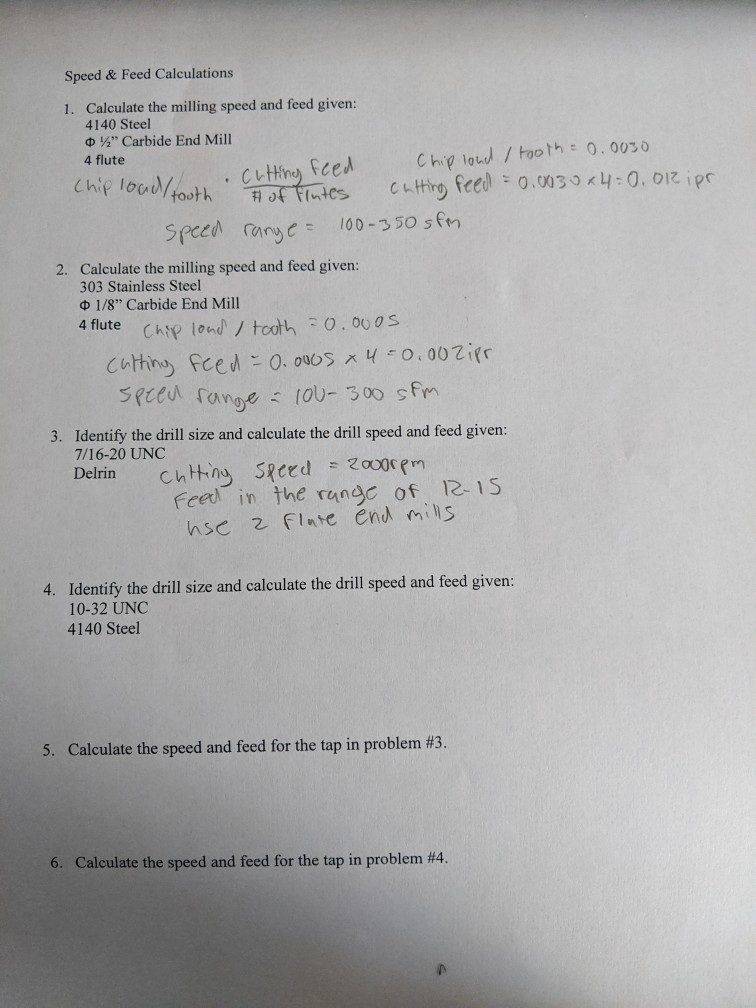 Speed & Feed Calculations
1. Calculate the milling speed and feed given:
4140 Steel
Φ ½” Carbide End Mill
4 flute
Chip load/tooth = 0.0030
Chip load/tooth · Cutting feed / # of flutes
Cutting feed = 0.0030 x 4 = 0.012 ipr
Speed range = 100-350 sfm
2. Calculate the milling speed and feed given:
303 Stainless Steel
Φ 1/8” Carbide End Mill
4 flute Chip load / tooth = 0.0005
Cutting feed = 0.0005 x 4 = 0.002 ipr
Speed range = 100-300 sfm
3. Identify the drill size and calculate the drill speed and feed given:
7/16-20 UNC
Delrin Cutting Speed = 2000rpm
Feed in the range of 12-15
hse 2 flute end mills
4. Identify the drill size and calculate the drill speed and feed given:
10-32 UNC
4140 Steel
5. Calculate the speed and feed for the tap in problem #3.
6. Calculate the speed and feed for the tap in problem #4.